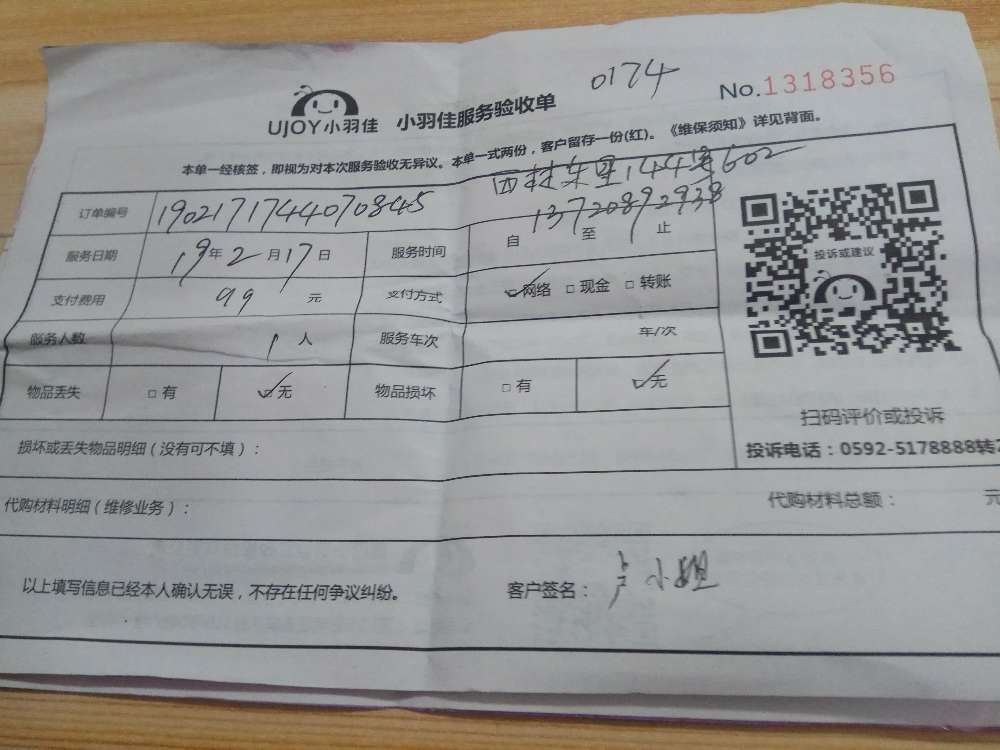 0174
No.1318356
UJOY小羽佳 小羽佳服务验收单
本单一经核签，即视为对本次服务验收无异议。本单一式两份，客户留存一份(红)。《维保须知》详见背面。
西村东里144号602
订单编号 1902171744070845
13720892938
服务日期 19年2月17日 服务时间 自 至 止
支付费用 99 元 支付方式 ☑网络 □现金 □转账
服务人数 1人 服务车次 车/次
物品丢失 □有 ☑无 物品损坏 □有 ☑无
投诉或建议
扫码评价或投诉
投诉电话：0592-5178888转
损坏或丢失物品明细（没有可不填）：
代购材料明细（维修业务）： 代购材料总额： 元
以上填写信息已经本人确认无误，不存在任何争议纠纷。 客户签名：卢小姐